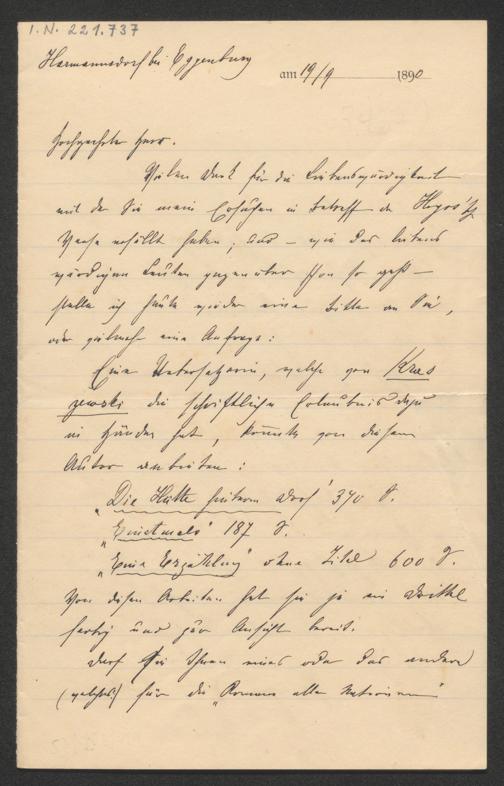 I.N. 221.737
Harmannsdorf bei Eggenburg
am 19/9 1890
Hochgeehrter Herr.
Vielen Dank für die Liebenswürdigkeit
mit der Sie mein Ersuchen in Betreff der
Verse erfüllt haben; und – wie das liebens
würdigen Leuten gegenüber schon so geht –
stelle ich heute wieder eine Bitte an Sie,
oder vielmehr eine Anfrage:
Eine Uebersetzerin, welche von Kras
zewski die schriftliche Erlaubnis dazu
in Händen hat, könnte von diesem
Autor anbieten:
„Die Hütte hinterm Dorf" 370 S.
187 S.
„Eine Erzählung" ohne Titel 600 S.
Von diesen Arbeiten hat sie je ein Drittel
fertig und zur Ansicht bereit.
Darf sie Ihnen eines oder das andere
(welches?) für die „Romane aller Nationen"